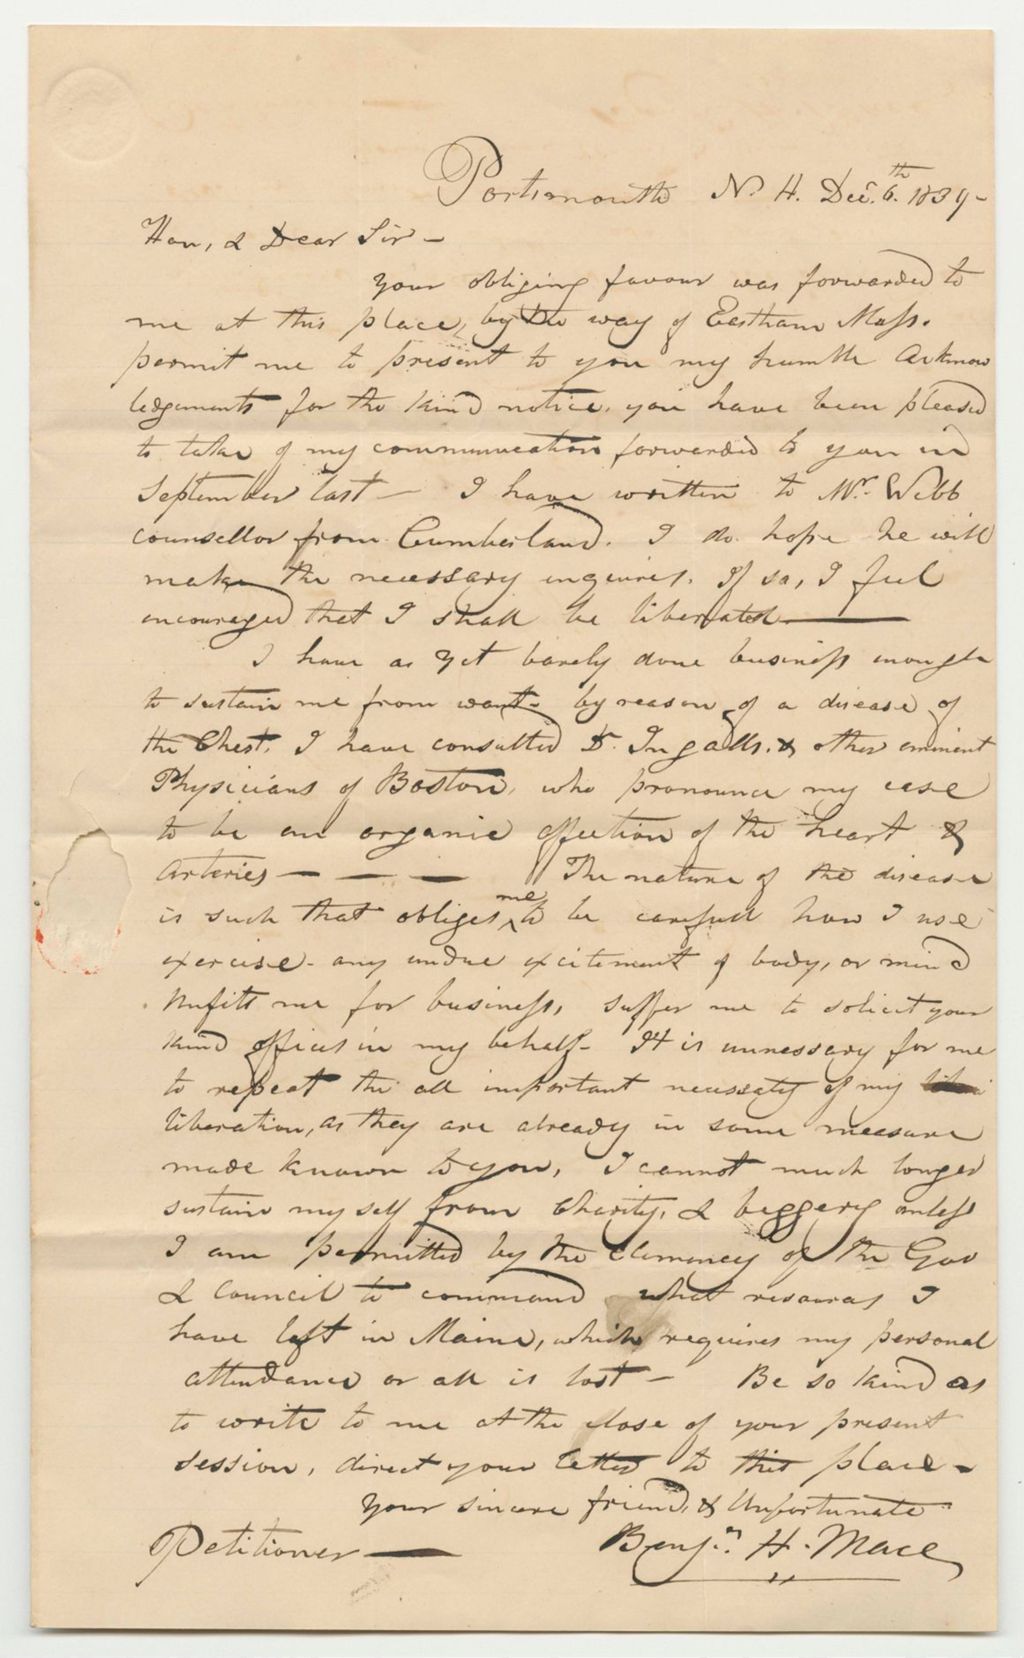 Portsmouth N. H. Dec. 6.th 1839-
Hon, & Dear Sir -
Your obliging favour was forwarded to
me at this place, by the way of Eastham Mass.
permit me to present to you my humble Acknow
ledgements for the kind notice, you have been pleased
to take of my communication forwarded to you in
September last - I have written to Mr. Webb
counsellor from Cumberland. I do hope he will
make the necessary inquires. If so, I feel
encouraged that I shall be liberated -
I have as yet barely done business enough
to sustain me from want - by reason of a disease of
the Chest. I have consulted Dr. Ingalls. & other eminent
Physicians of Boston, who pronounce my case
to be an organic affection of the heart &
Arteries - - - The nature of the disease
is such that obliges me to be carefull how I use
exercise - any undue excitement of body, or mind
unfits me for business, suffer me to solicit your
kind offices in my behalf - It is unnessary for me
to repeat the all important necessaty of my
liberation, as they are already in some measure
made known to you, I cannot much longer
sustain myself from Charity, & beggery unless
I am permitted by the Clemency of the Gov
& Council to command what resources I
have left in Maine, which requires my personal
attendance or all is lost - Be so kind as
to write to me at the close of your present
session, direct your letter to this place -
Your sincere friend, & Unfortunate
Petitioner - Benjn. H. Mace